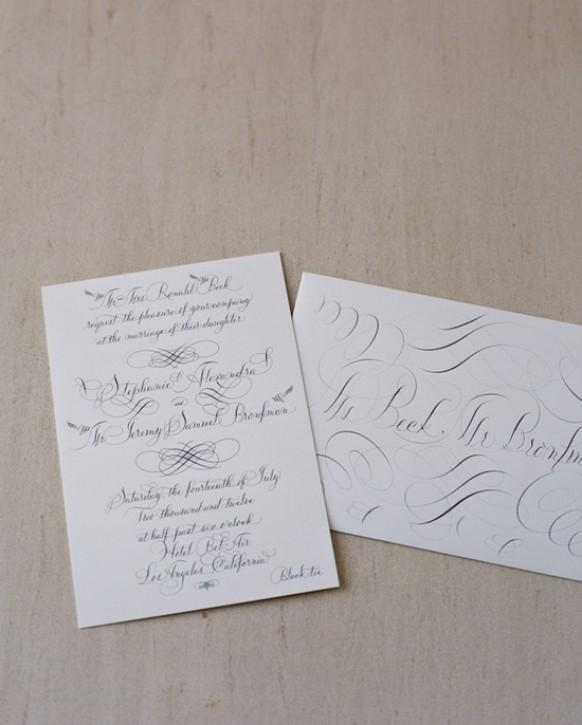 Mr & Mrs Ronald Beck
request the pleasure of your company
at the marriage of their daughter
Stephanie Alexandra
and
Mr Jeremy Samuel Bronfman
Saturday, the fourteenth of July
two thousand and twelve
at half past six o'clock
Hotel Bel-Air
Los Angeles, California
Black tie
Ms Beck, Mr Bronfm